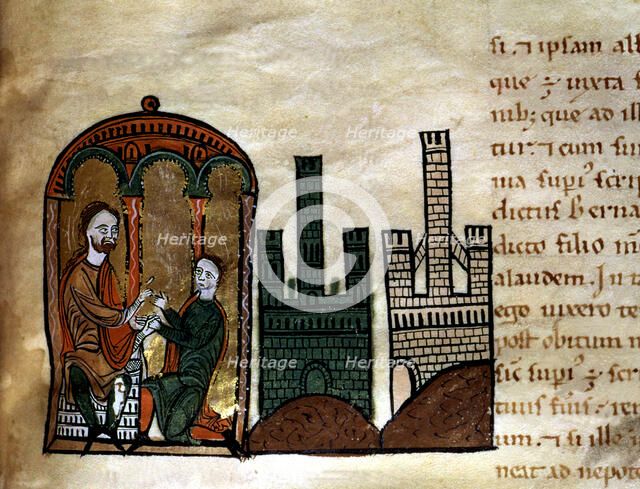 si. ⁊ ipsam all
que ⁊ iuxta s
nib; que ad ill
tur. ⁊ cum sui
ma supi sc̃ri
dictus Berna
dicto filio m
alaudem. In
ego uixero te
post obitum
sic supi ⁊ scr
tuus fiius. ten
um. ⁊ si ille
neat ad nepote
Heritage
Heritage
Heritage
Heritage
Heritage
Heritage
Heritage
Heritage
Heritage
C